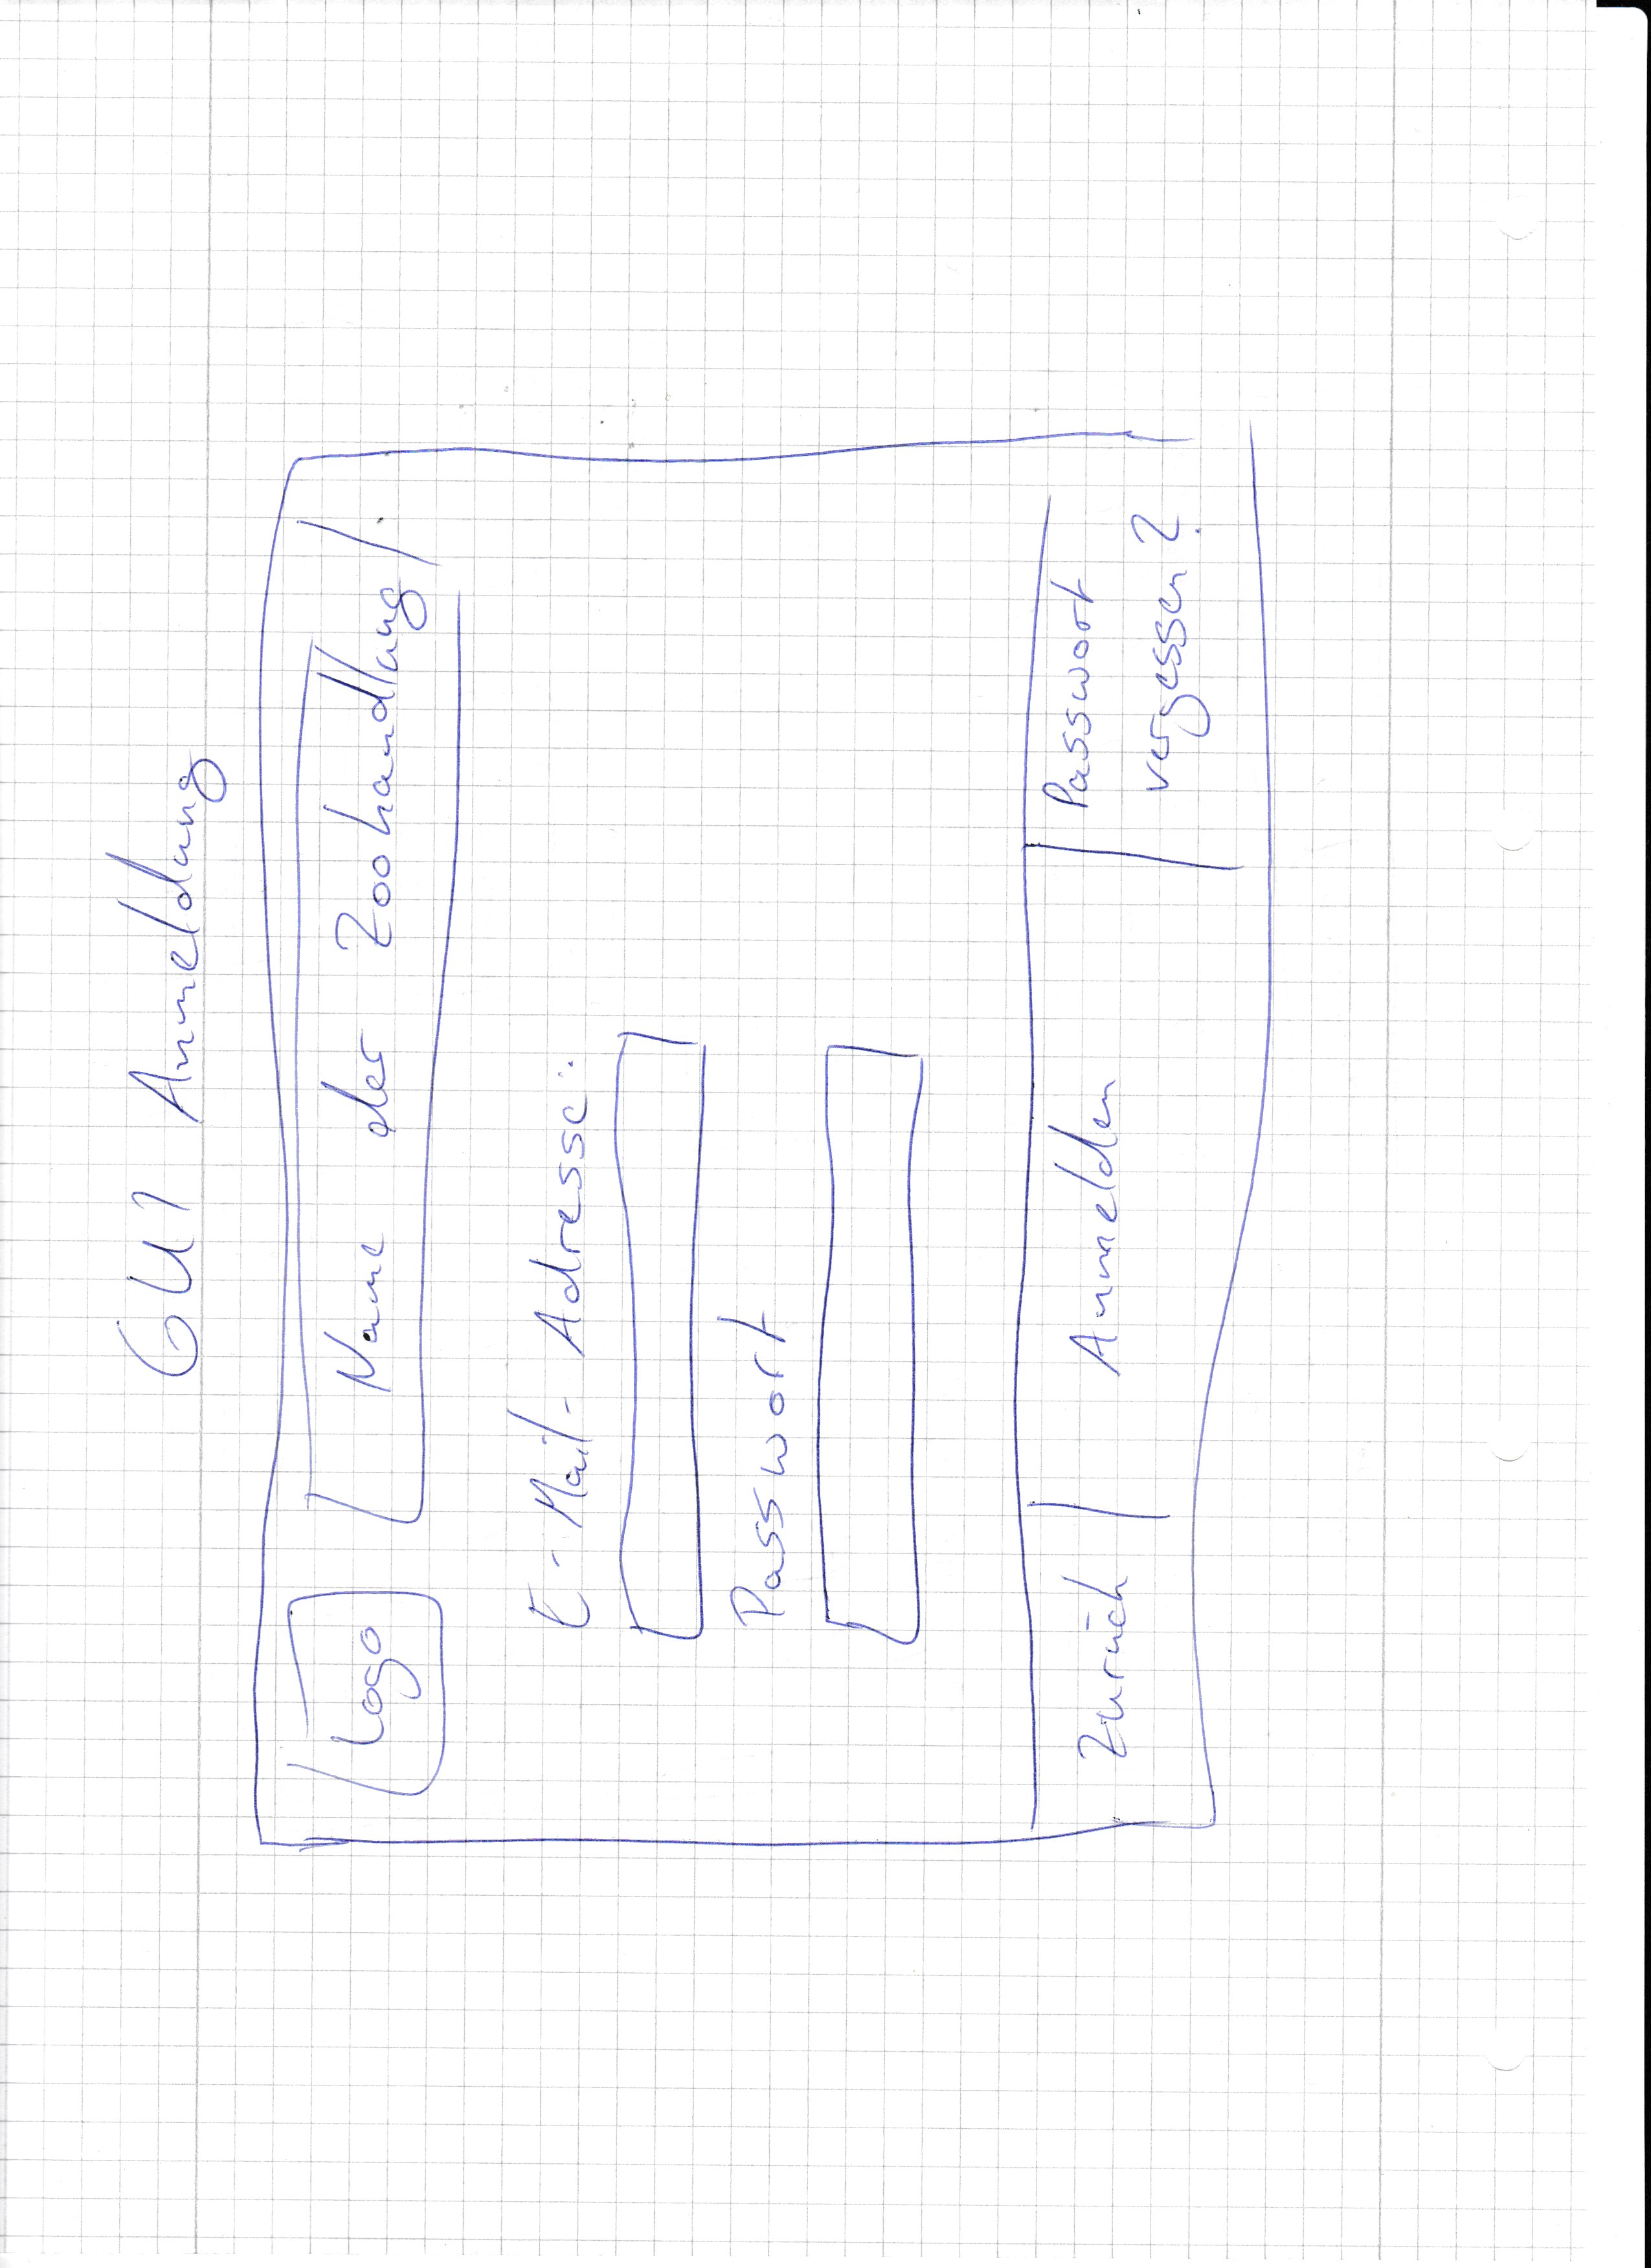 GUI Anmeldung
Logo
Name der Zoohandlung
E-Mail-Adresse:
Passwort
Zurück
Anmelden
Passwort
vergessen?